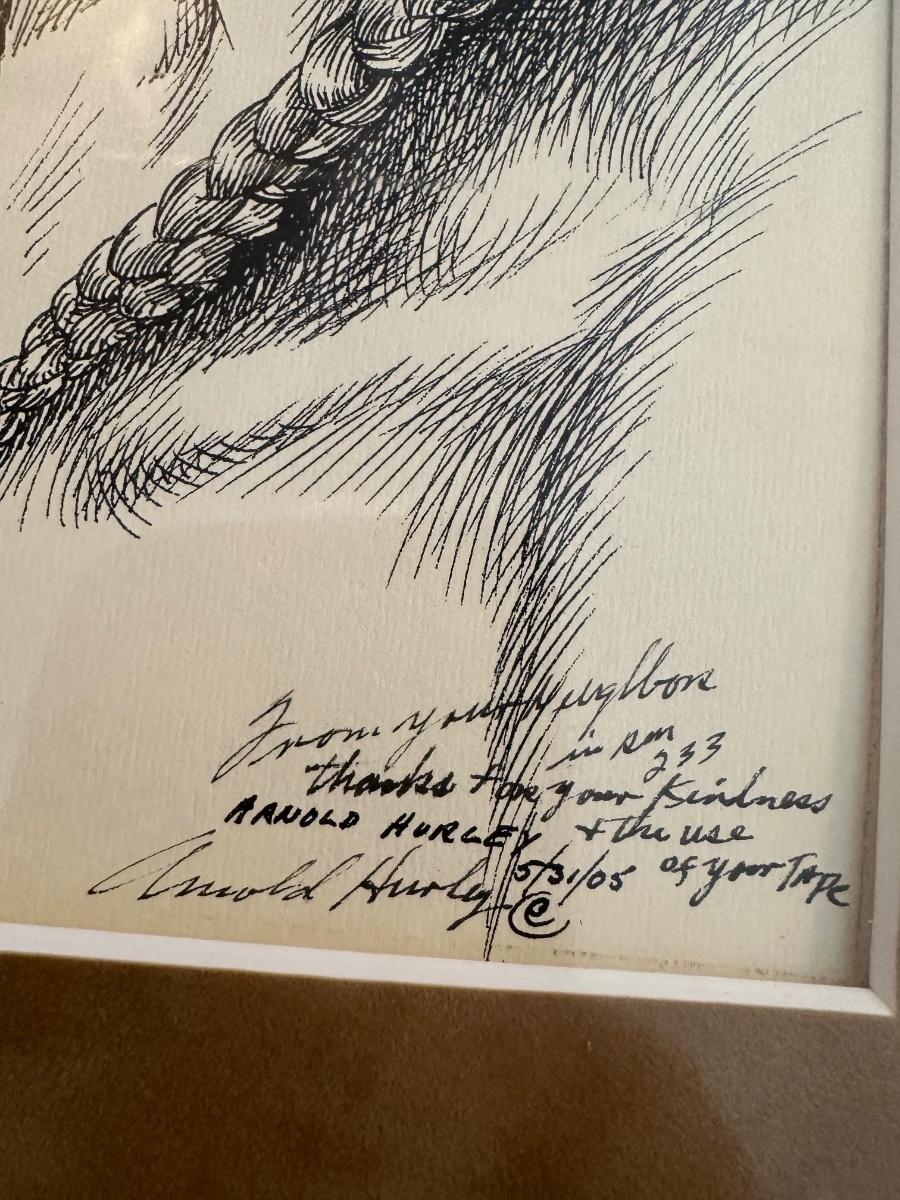 From your Neighbor
in Rm
233
thanks for your Kindness
ARNOLD HURLEY & the use
of your TAPE
Arnold Hurley 5/31/05
©